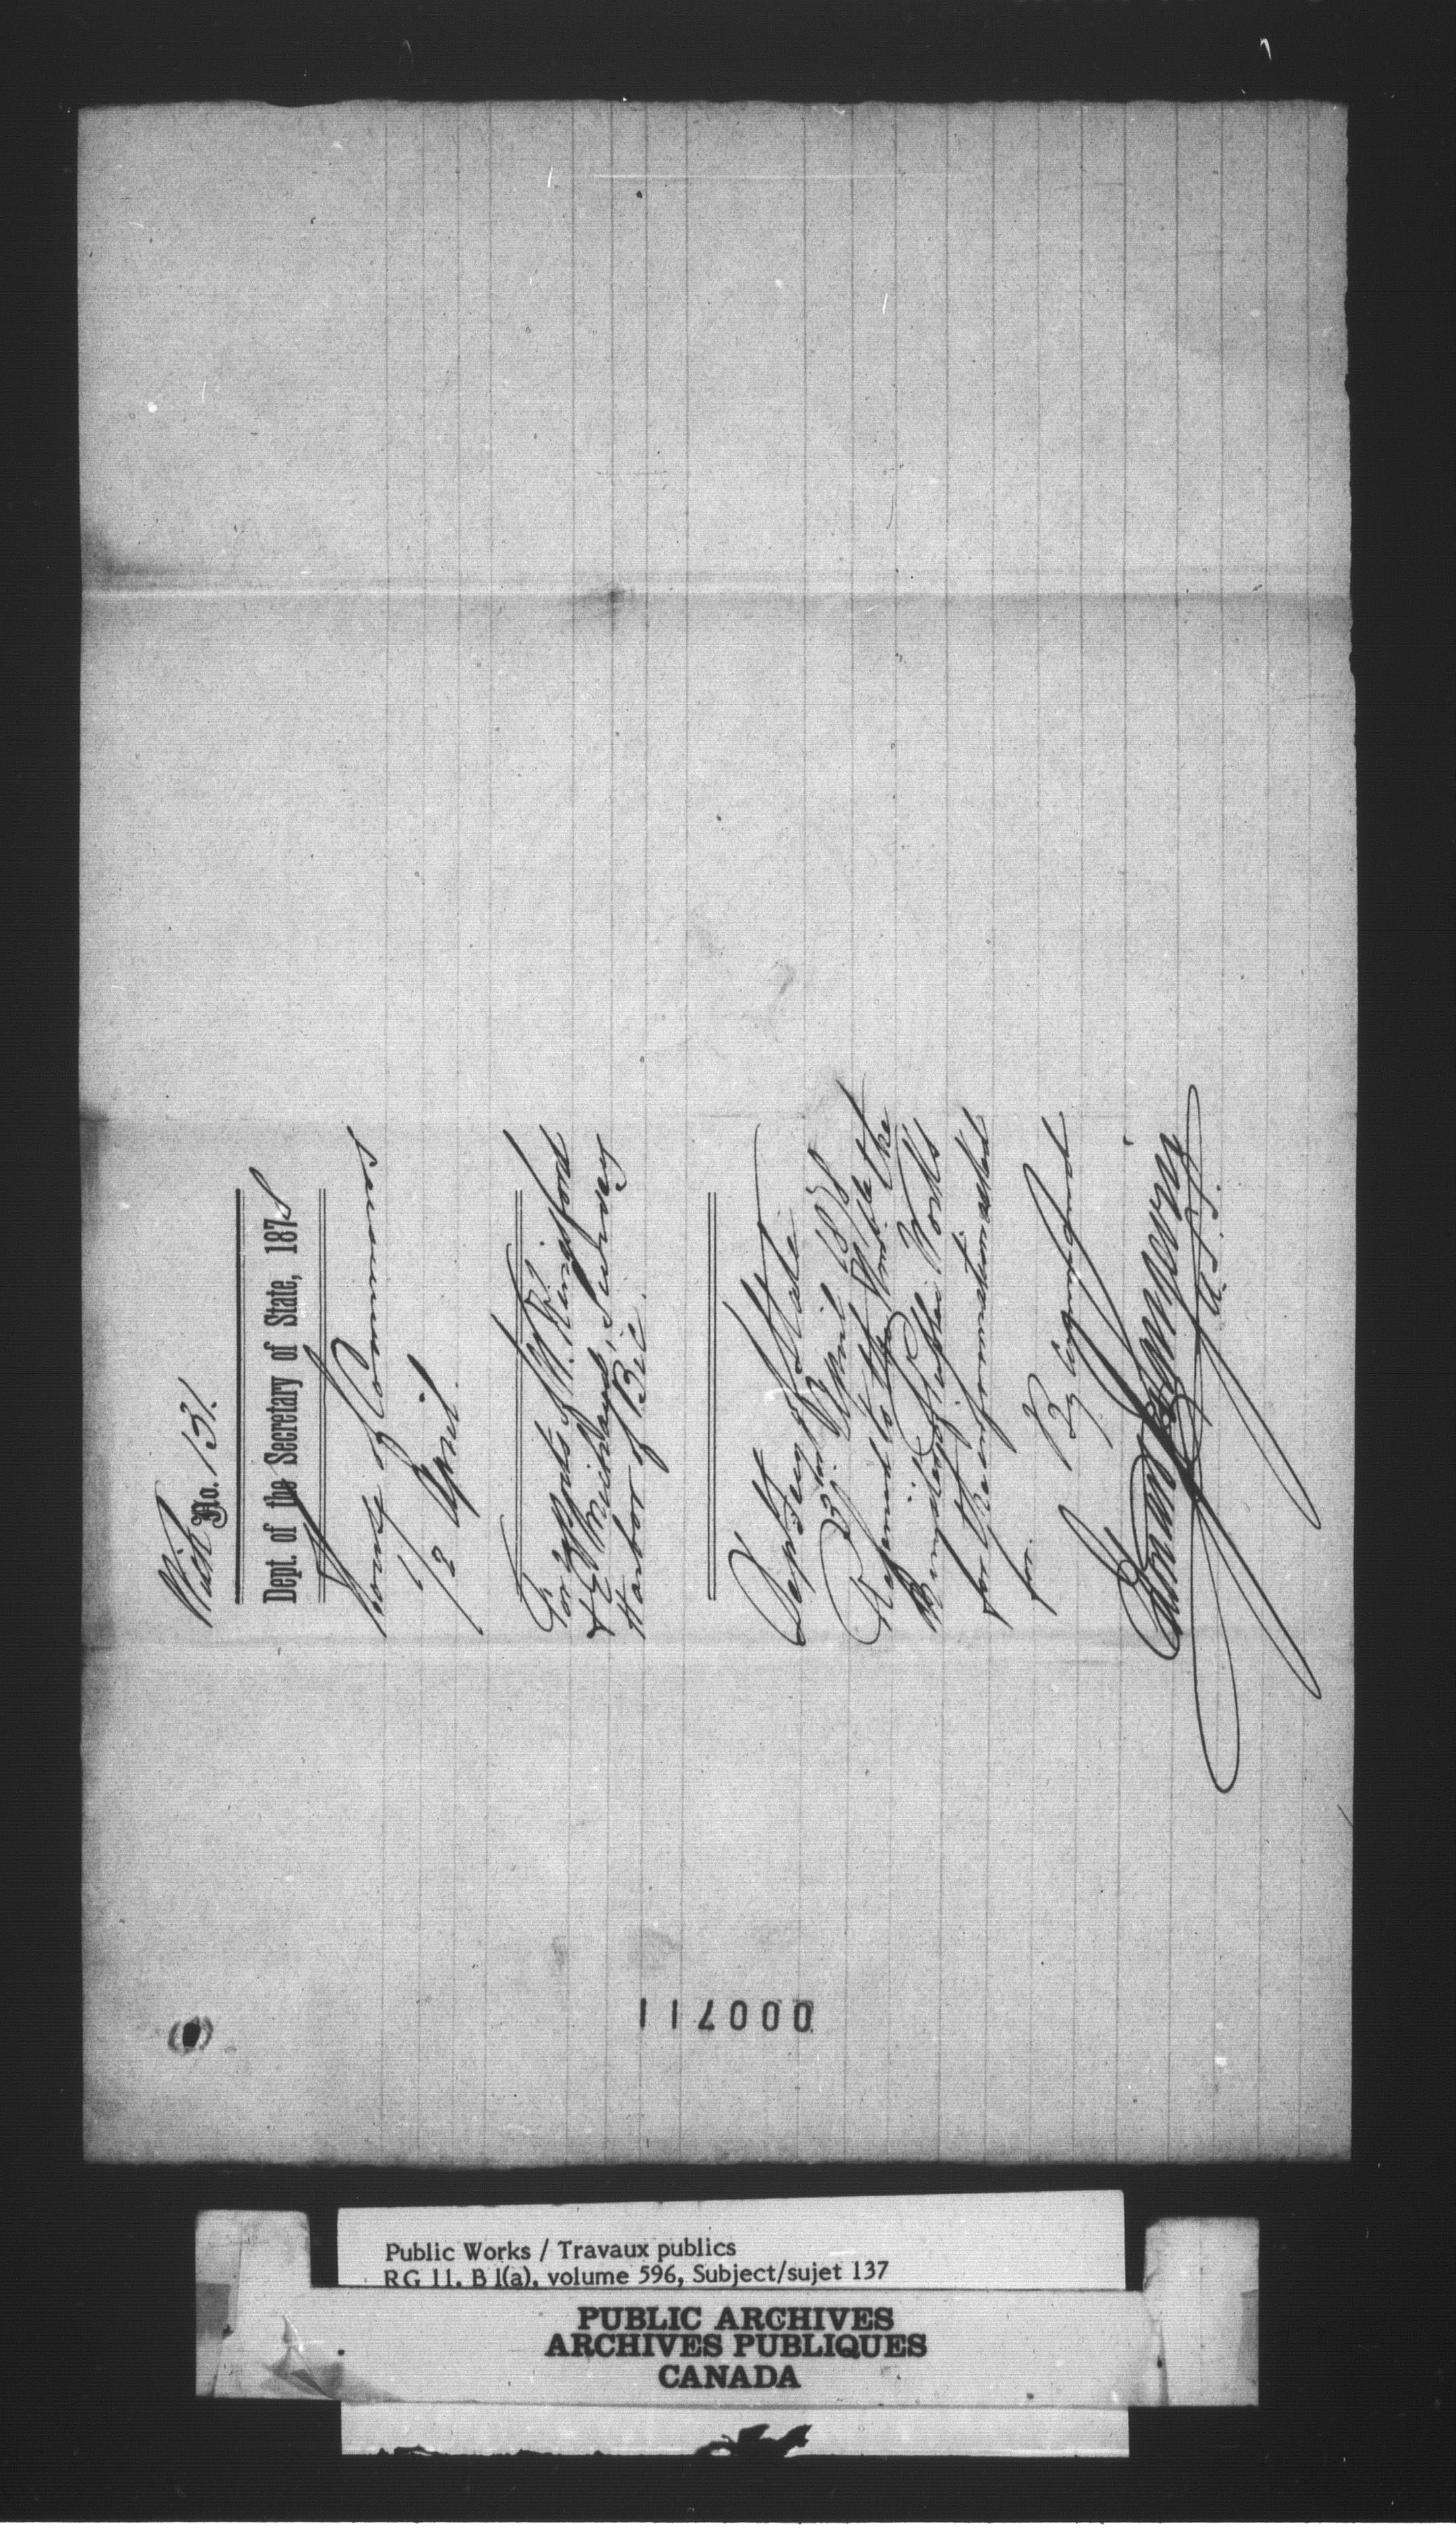 With
No. 131.
Dept. of the Secretary of State, 1878
House of Commons
12 April.
For reports of W. Kingsford
& E. Michaud, Survey
Harbor of Bic.
Dept. of State
23rd April 1878
Referred to the Honble the
Minister of Public Works
for the information asked
for.
By Command
Edouard J. Langevin
U.S.S.
000711
Public Works / Travaux publics
RG 11, B1(a), volume 596, Subject/sujet 137
PUBLIC ARCHIVES
ARCHIVES PUBLIQUES
CANADA